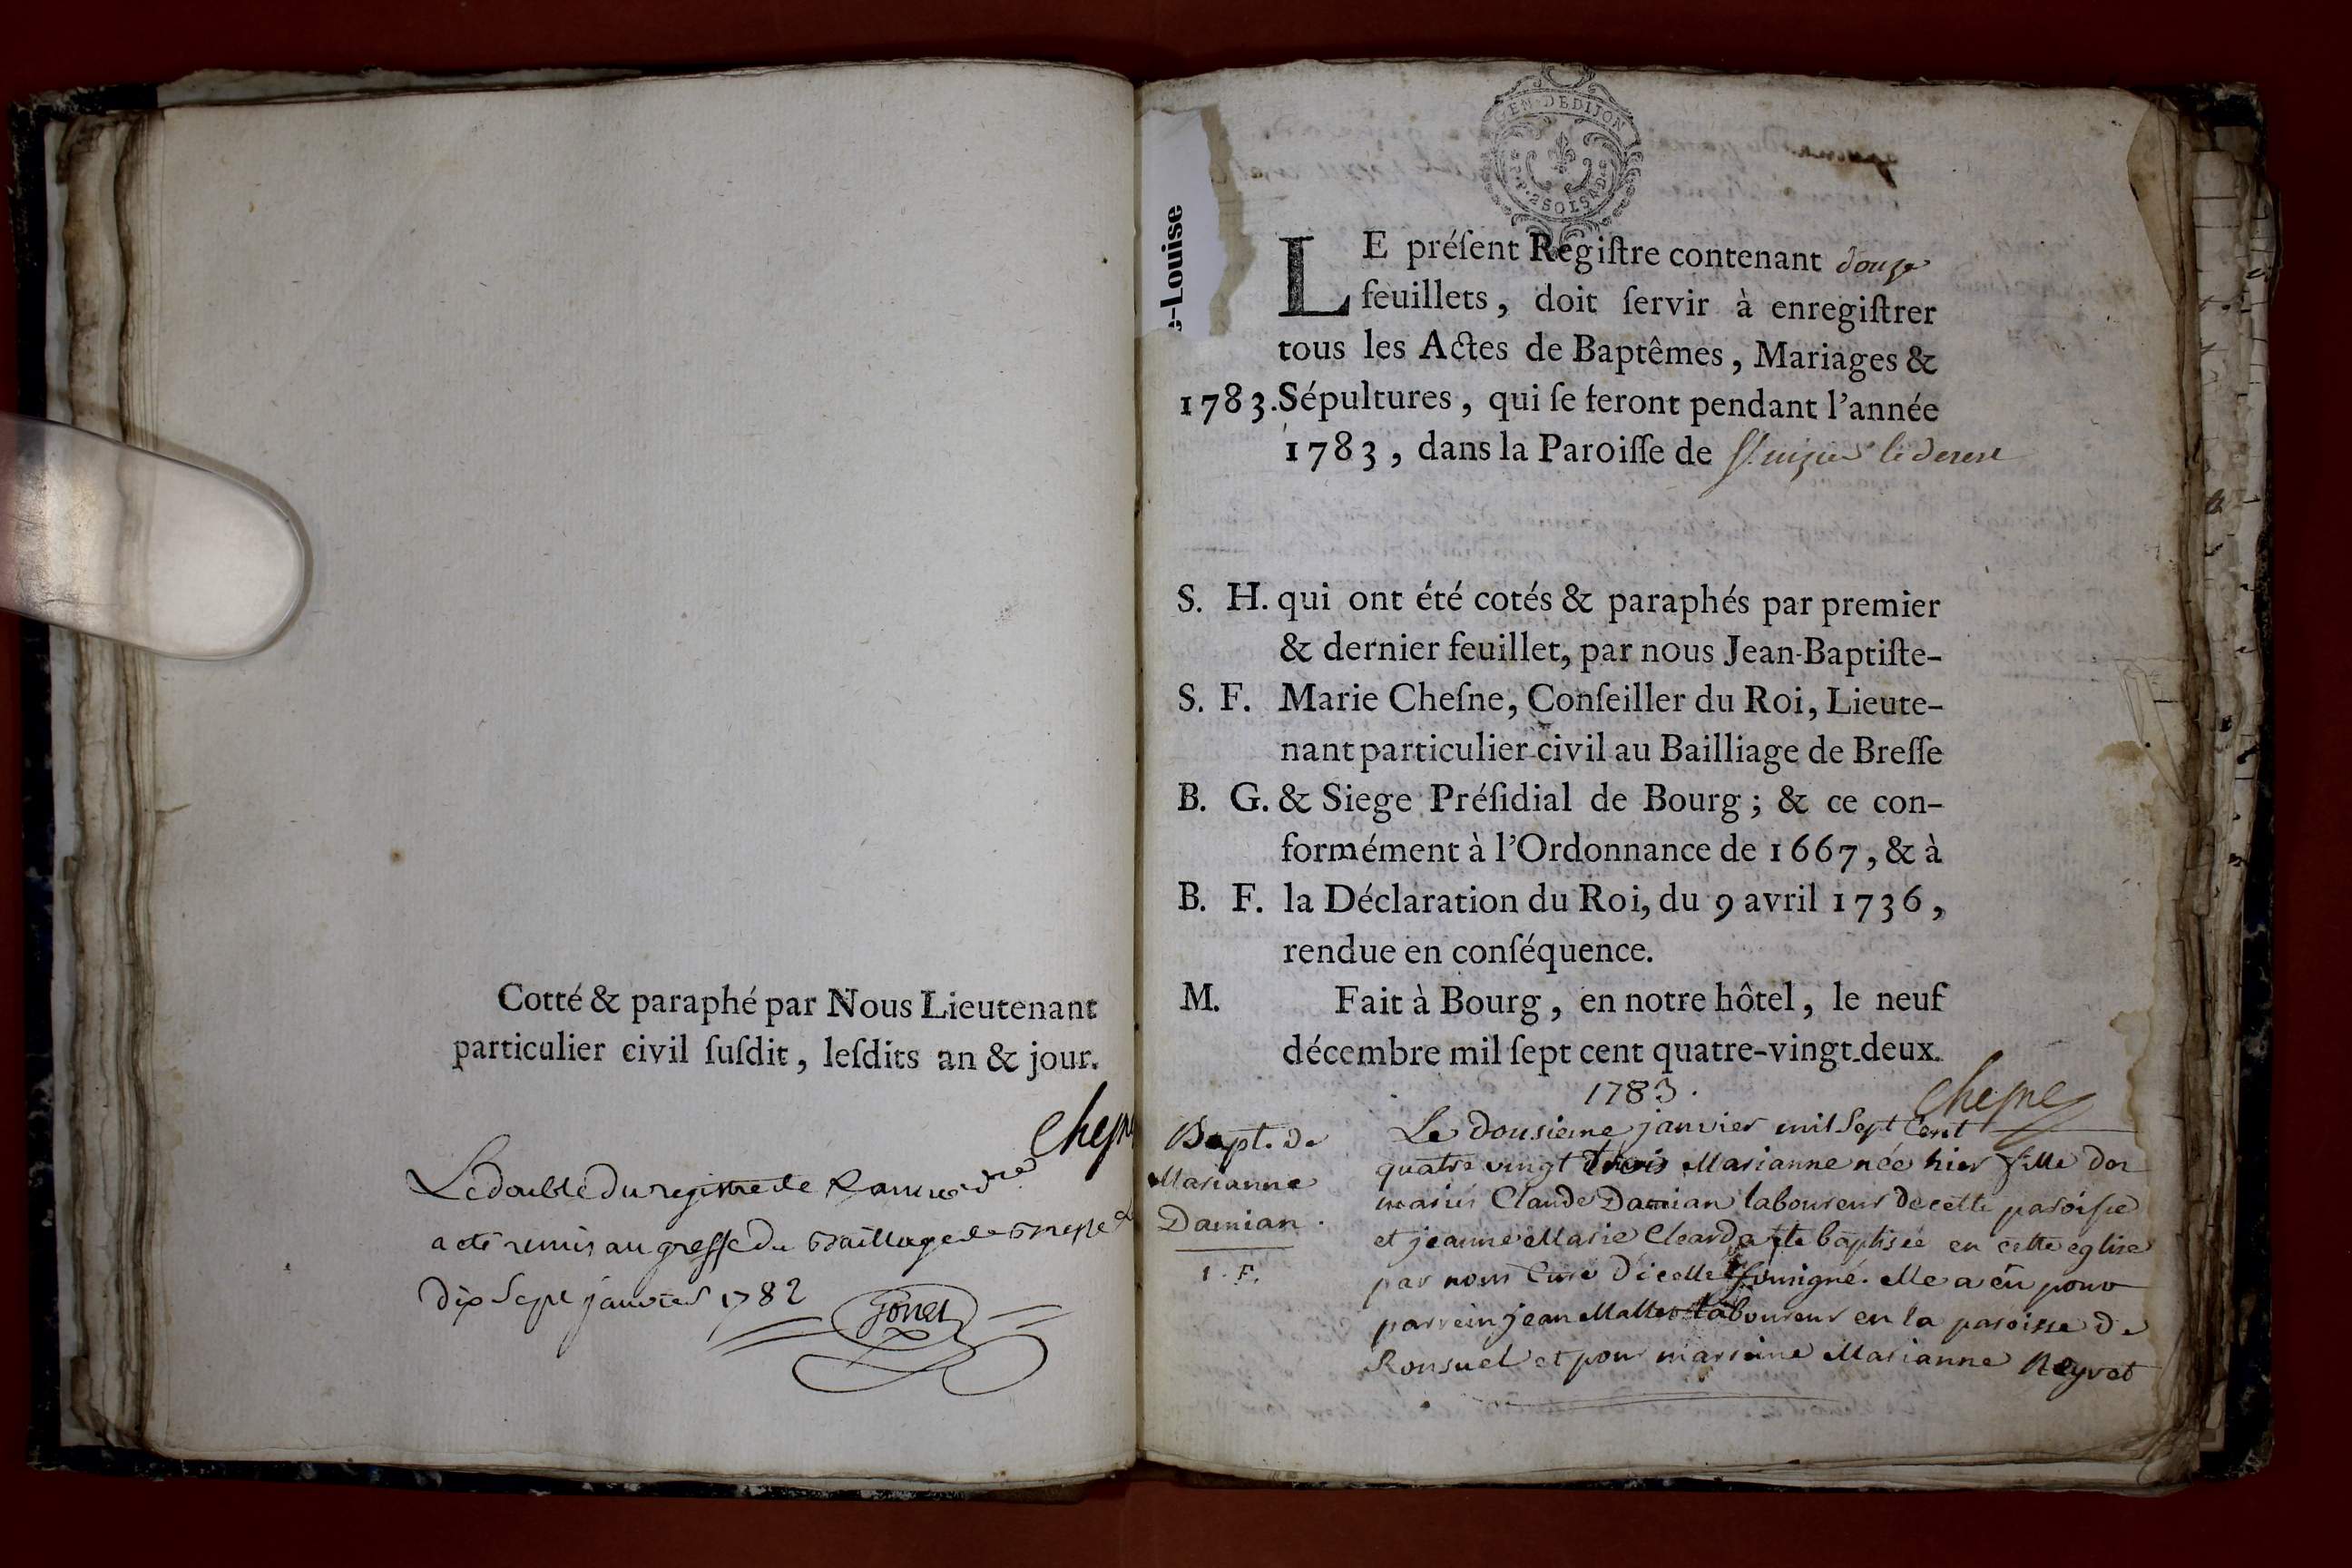 Cotté & paraphé par Nous Lieutenant
particulier civil ſuſdit, leſdits an & jour.
Cheſne
Le double du registre de l'année dre
a été remis au greffe du Bailliage de Bresse
dix Sept janvier 1782
Gonet
-Louise
GEN DE DIJON
LE préſent Regiſtre contenant douze
feuillets, doit ſervir à enregiſtrer
tous les Actes de Baptêmes, Mariages &
1783. Sépultures, qui ſe feront pendant l'année
1783, dans la Paroiſſe de St. nizier le desert
S. H. qui ont été cotés & paraphés par premier
& dernier feuillet, par nous Jean-Baptiſte-
S. F. Marie Cheſne, Conſeiller du Roi, Lieute-
nant particulier civil au Bailliage de Breſſe
B. G. & Siege Préſidial de Bourg ; & ce con-
formément à l'Ordonnance de 1667, & à
B. F. la Déclaration du Roi, du 9 avril 1736,
rendue en conſéquence.
M. Fait à Bourg, en notre hôtel, le neuf
décembre mil ſept cent quatre-vingt-deux.
1783.
Cheſne
Bapt. de
Marianne
Damian.
1. F.
Le dousieme janvier mil Sept Cent
quatre vingt trois Marianne née hier fille des
mariés Claude Damian laboureur de cette paroisse
et jeanne Marie Cleard a été baptisée en cette eglise
par nous Curé d'icelle soussigné. elle a eu pour
parrein jean Mallet laboureur en la paroisse de
Ronsuel et pour marraine Marianne Neyret